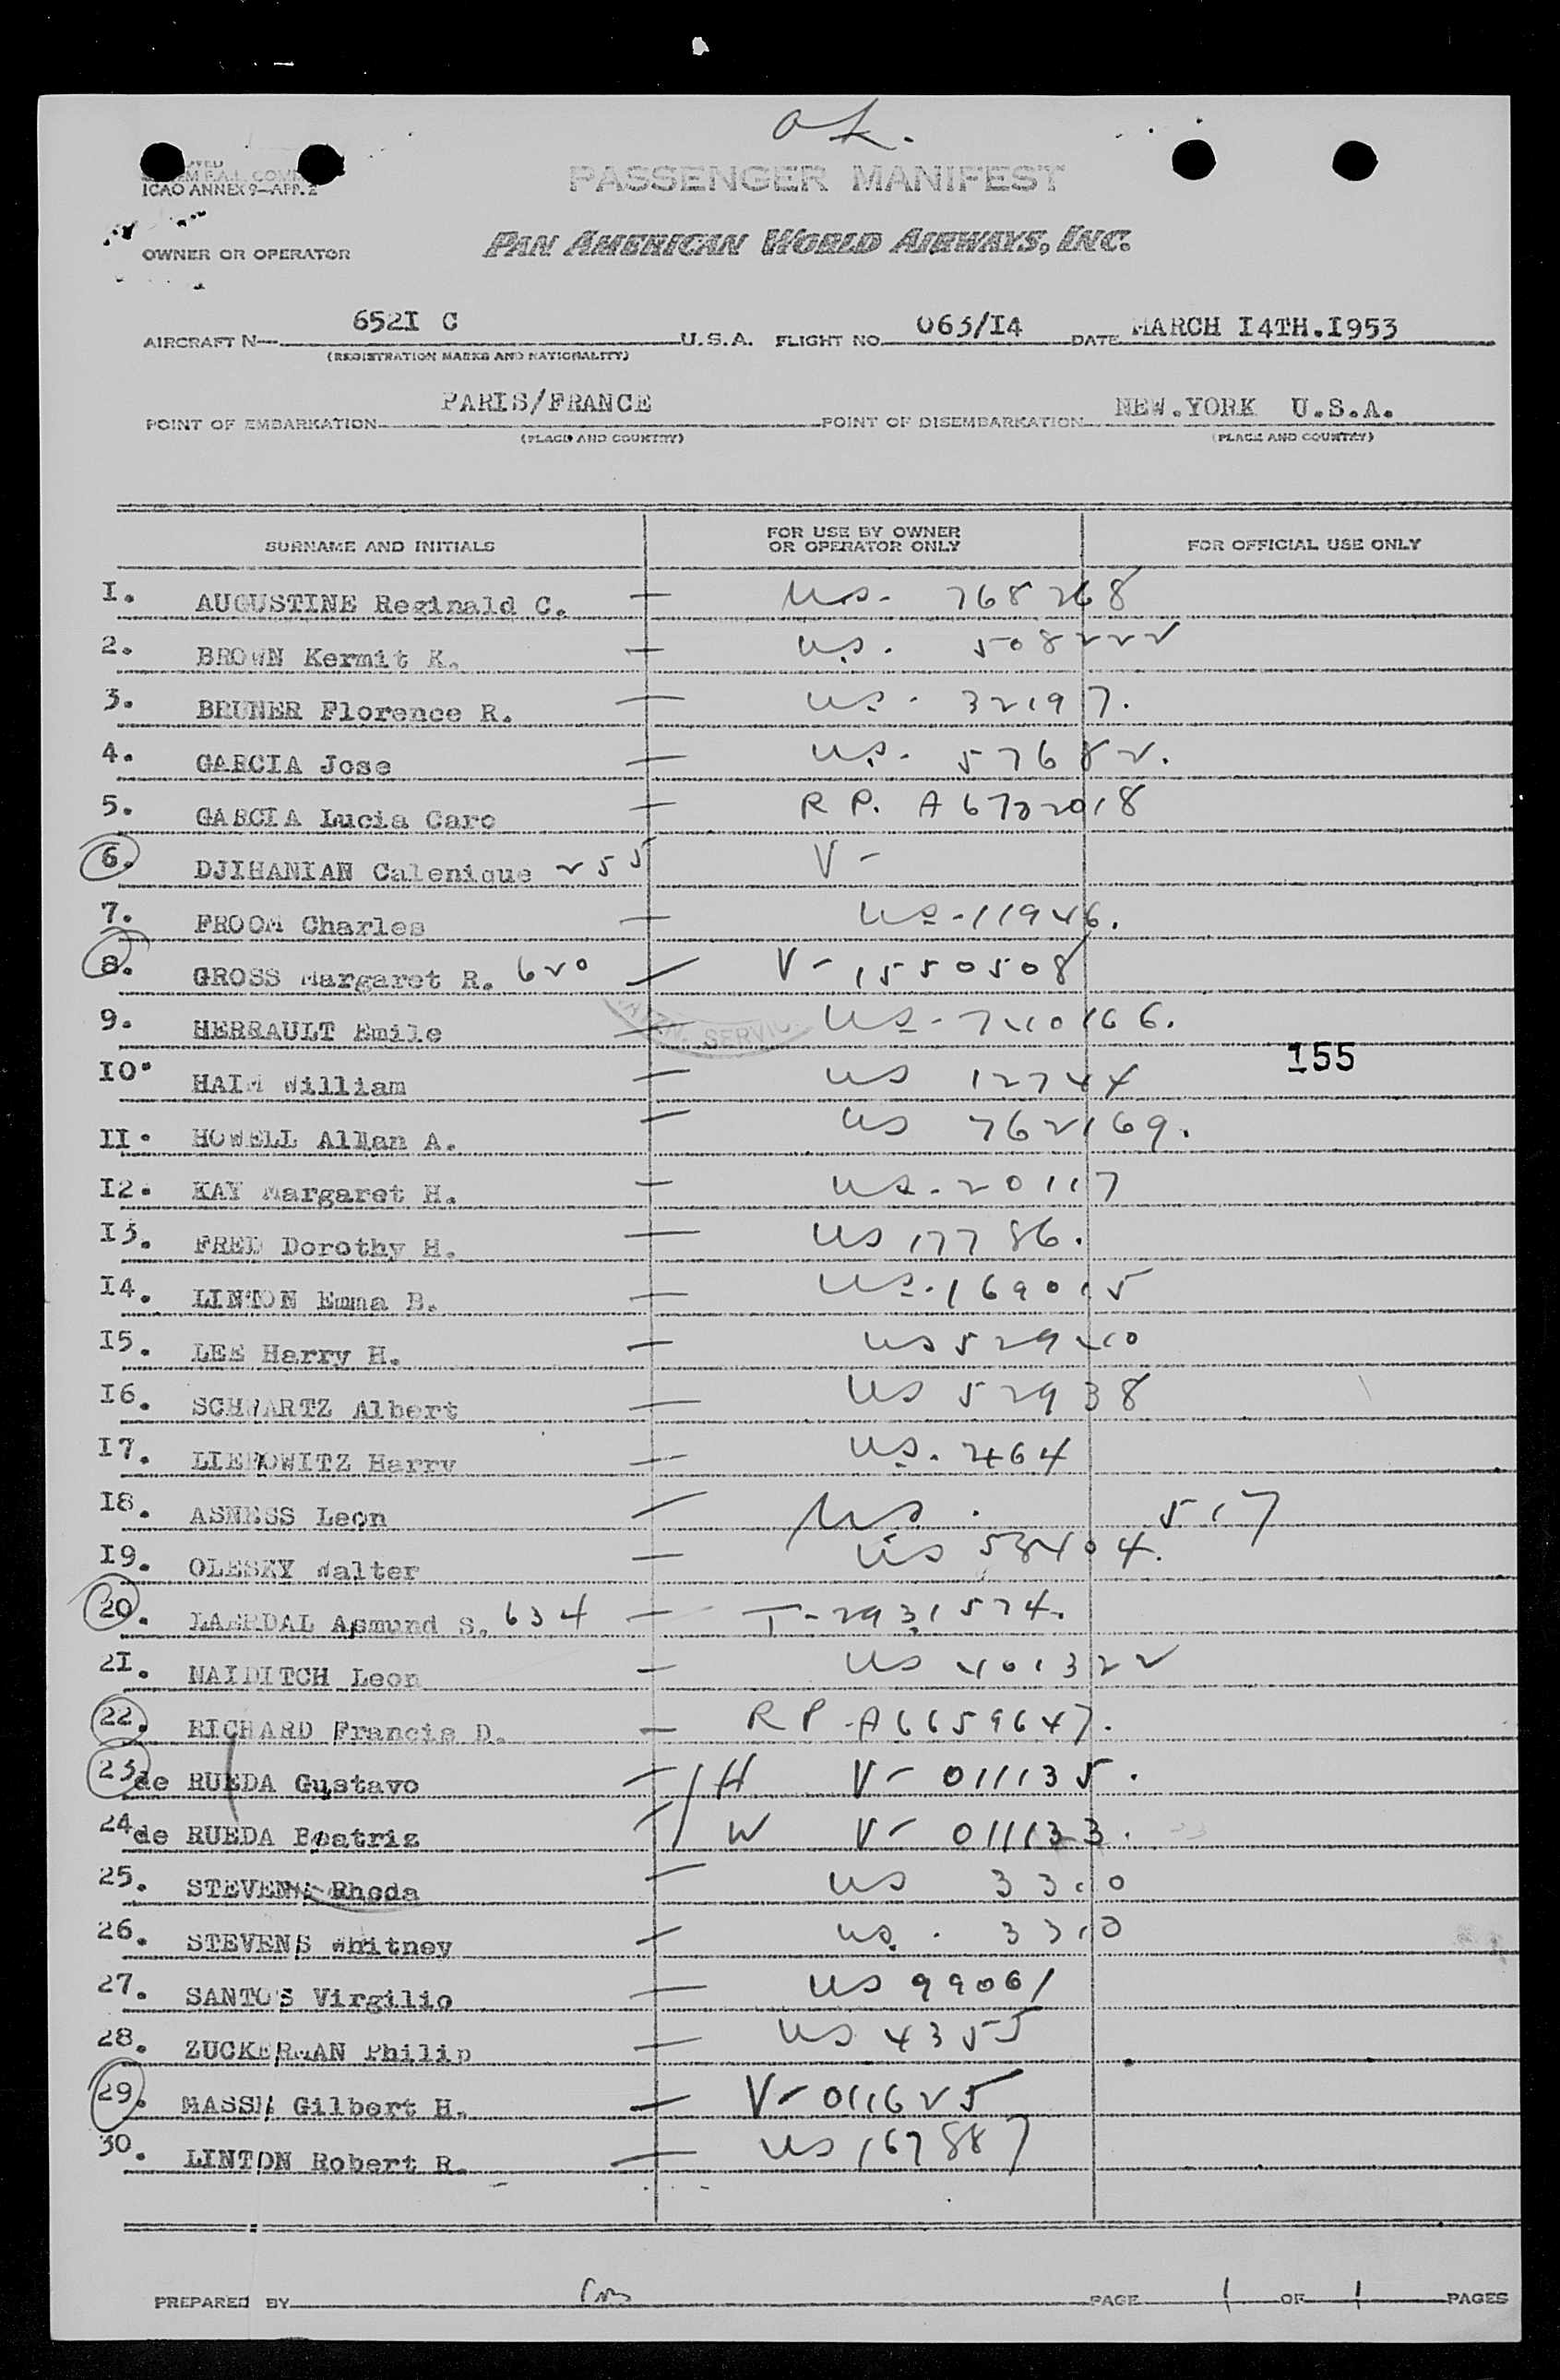 ok.
PASSENGER MANIFEST
ICAO ANNEX 9—APP. 2
OWNER OR OPERATOR PAN AMERICAN WORLD AIRWAYS, INC.
AIRCRAFT N— 652I C U.S.A. FLIGHT NO. 063/I4 DATE MARCH I4TH.I953
(REGISTRATION MARKS AND NATIONALITY)
POINT OF EMBARKATION PARIS/FRANCE POINT OF DISEMBARKATION NEW.YORK U.S.A.
(PLACE AND COUNTRY) (PLACE AND COUNTRY)
SURNAME AND INITIALS FOR USE BY OWNER OR OPERATOR ONLY FOR OFFICIAL USE ONLY
I. AUGUSTINE Reginald C. — US. 768268
2. BROWN Kermit K. — US. 508222
3. BRUNER Florence R. — US. 32197.
4. GARCIA Jose — US. 57682.
5. GARCIA Lucia Caro — R P. A6722018
6. DJIHANIAN Calenique 255 V-
7. FROOM Charles — US-11946.
8. GROSS Margaret R. 620 — V-1550508
9. HERRAULT Emile — US-
SERVIC
155
IO. HAIM William — US 12744
II. HOWELL Allan A. — US 762169.
I2. KAY Margaret H. — US. 20117
I3. FRED Dorothy H. — US 17786.
I4. LINTON Emma B. — US. 169015
I5. LEE Harry H. — US 529210
I6. SCHWARTZ Albert — US 52938
I7. LIEBOWITZ Harry — US. 264
I8. ASNESS Leon — US. 517
I9. OLESKY Walter — US
20. LAERDAL Asmund S. 634 — T-2931574.
2I. NAIDITCH Leon — US 401322
22. RICHARD Francis D. — R P-A6659647.
23 de RUEDA Gustavo — H V- 011135.
24 de RUEDA Beatriz — W V- 011133.
25. STEVENS Rhoda — US 3310
26. STEVENS Whitney — US. 3310
27. SANTOS Virgilio — US 99061
28. ZUCKERMAN Philip — US 4355
29. MASSA Gilbert H. — V-011625
30. LINTON Robert R. — US 167887
PREPARED BY PAGE 1 OF 1 PAGES